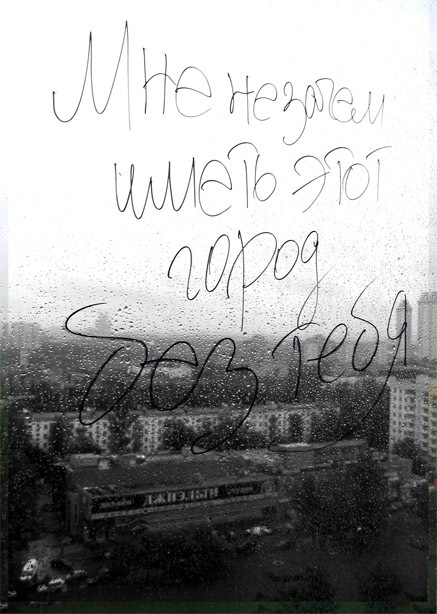 Мне незачем
иметь этот
город
без тебя